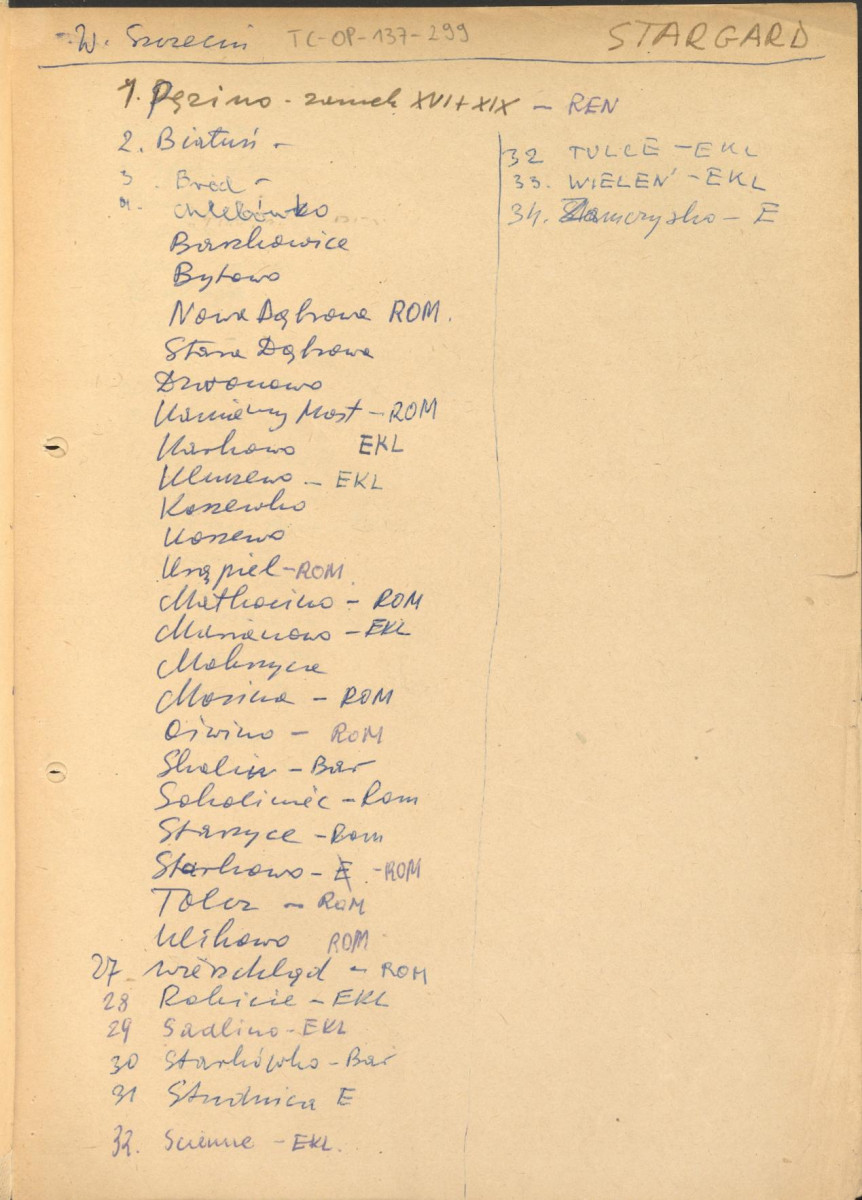 W. Szczecin TC-OP-137-299 STARGARD
1. Pęzino - zamek XVI+XIX - REN
2. Białuń -
3. Bród -
4. Chlebówko
Barzkowice
Bytowo
Nowa Dąbrowa ROM.
Stara Dąbrowa
Dzwonowo
Kamienny Most - ROM
Karkowo EKL
Kluczewo - EKL
Koszewko
Koszewo
Krąpiel - ROM
Małkocino - ROM
Marianowo - EKL
Mokrzyca
Mosina - ROM
Oświno - ROM
Skalin - Bar
Sokoliniec - Rom
Starzyce - Rom
Starkowo - E - ROM
Tolcz - ROM
Ulikowo ROM
27 Wierzchląd - ROM
28 Rokicie - EKL
29 Sadlino - EKL
30 Starkówko - Bar
31 Studnica E
32. Scienne - EKL.
32 TULCE - EKL
33. WIELEŃ - EKL
34. Zamczysko - E